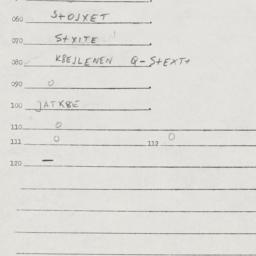 060 STOJXET
070 STXITE
080 KBEJLENEN Q-STEXT+
090 0
100 JATKBE
110 0
111 0 112 0
120 —